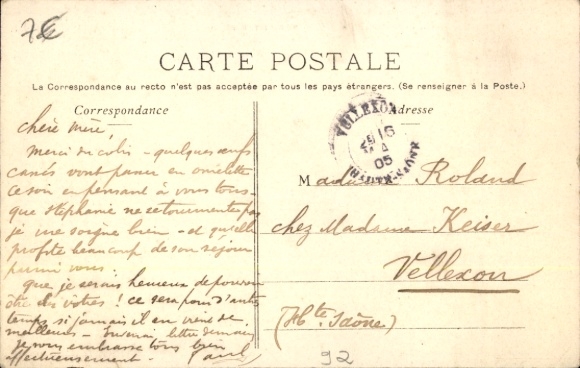 7€
CARTE POSTALE
La Correspondance au recto n'est pas acceptée par tous les pays étrangers. (Se renseigner à la Poste.)
Correspondance
Adresse
VELLEXON
05
HAUTE-SAÔNE
chère Mère,
Merci du colis - quelques œufs
cassés vont passer en omelette
ce soir en pensant à vous tous -
que Stéphanie ne se tourmente pas
je me soigne bien - et qu'elle
profite beaucoup de son séjour
parmi vous.
que je serais heureux de pouvoir
être des vôtres ! ce sera pour d'autres
temps si jamais il en vient de
meilleurs - lettre demain
je vous embrasse tous bien
affectueusement - Paul
Madame Roland
chez Madame Keiser
Vellexon
(Hte Saône)
92